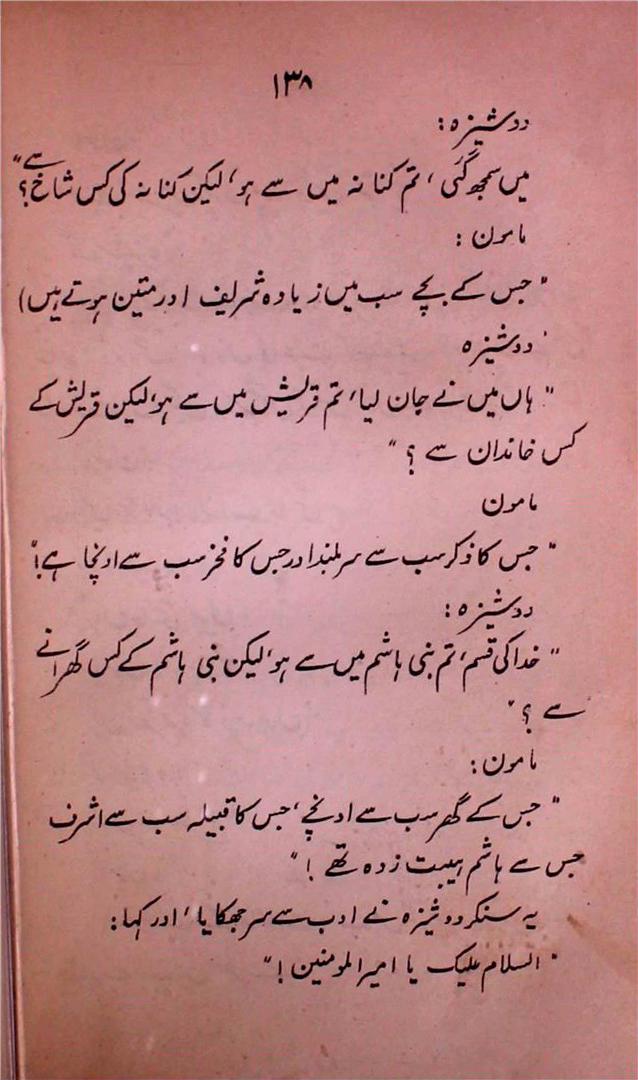 ۱۳۸
دوشیزہ :
میں سمجھ گئی، تم کنانہ میں سے ہو، لیکن کنانہ کی کس شاخ سے؟"
مامون :
"جس کے بچے سب میں زیادہ شریف اور متین ہوتے ہیں)
'دوشیزہ
"ہاں میں نے جان لیا، تم قریش میں سے ہو، لیکن قریش کے
کس خاندان سے؟"
مامون
"جس کا ذکر سب سے سربلند اور جس کا فخر سب سے اونچا ہے!"
دوشیزہ :
"خدا کی قسم، تم بنی ہاشم میں سے ہو، لیکن بنی ہاشم کے کس گھرانے
سے؟"
مامون :
"جس کے گھر سب سے اونچے، جس کا قبیلہ سب سے اشرف
جس سے ہاشم ہیبت زدہ تھے!"
یہ سنکر دوشیزہ نے ادب سے سر جھکایا، اور کہا :
"السلام علیک یا امیرالمومنین!"